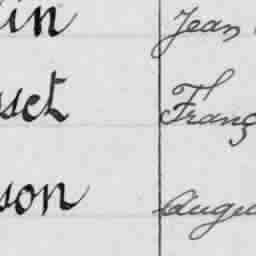 in Jean
sset Franç
son Augu